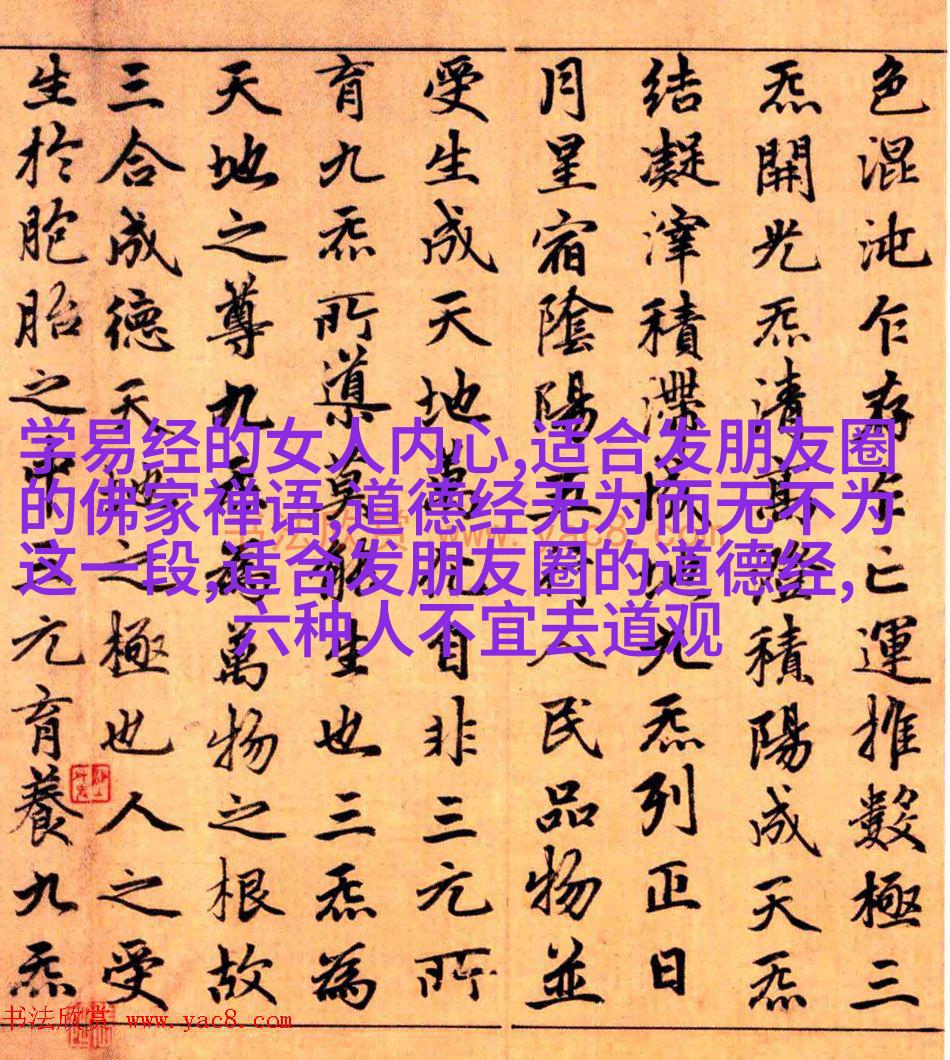 色混沌乍存乍亡運推數極三
炁開光炁清高澄積陽成天炁
結凝滓積滯成地九炁列正日
月星宿陰陽五行人民品物並
受生成天地萬化自非三元所
育九炁所導莫能生也三炁為
天地之尊九炁為萬物之根故
三合成德天地之極也人之受
生於胞胎之中三元育養九炁
学易经的女人内心,适合发朋友圈
的佛家禅语,道德经无为而无不为
这一段,适合发朋友圈的道德经,
六种人不宜去道观
书法欣赏 www.yac8.com
书法欣赏 www.yac8.com